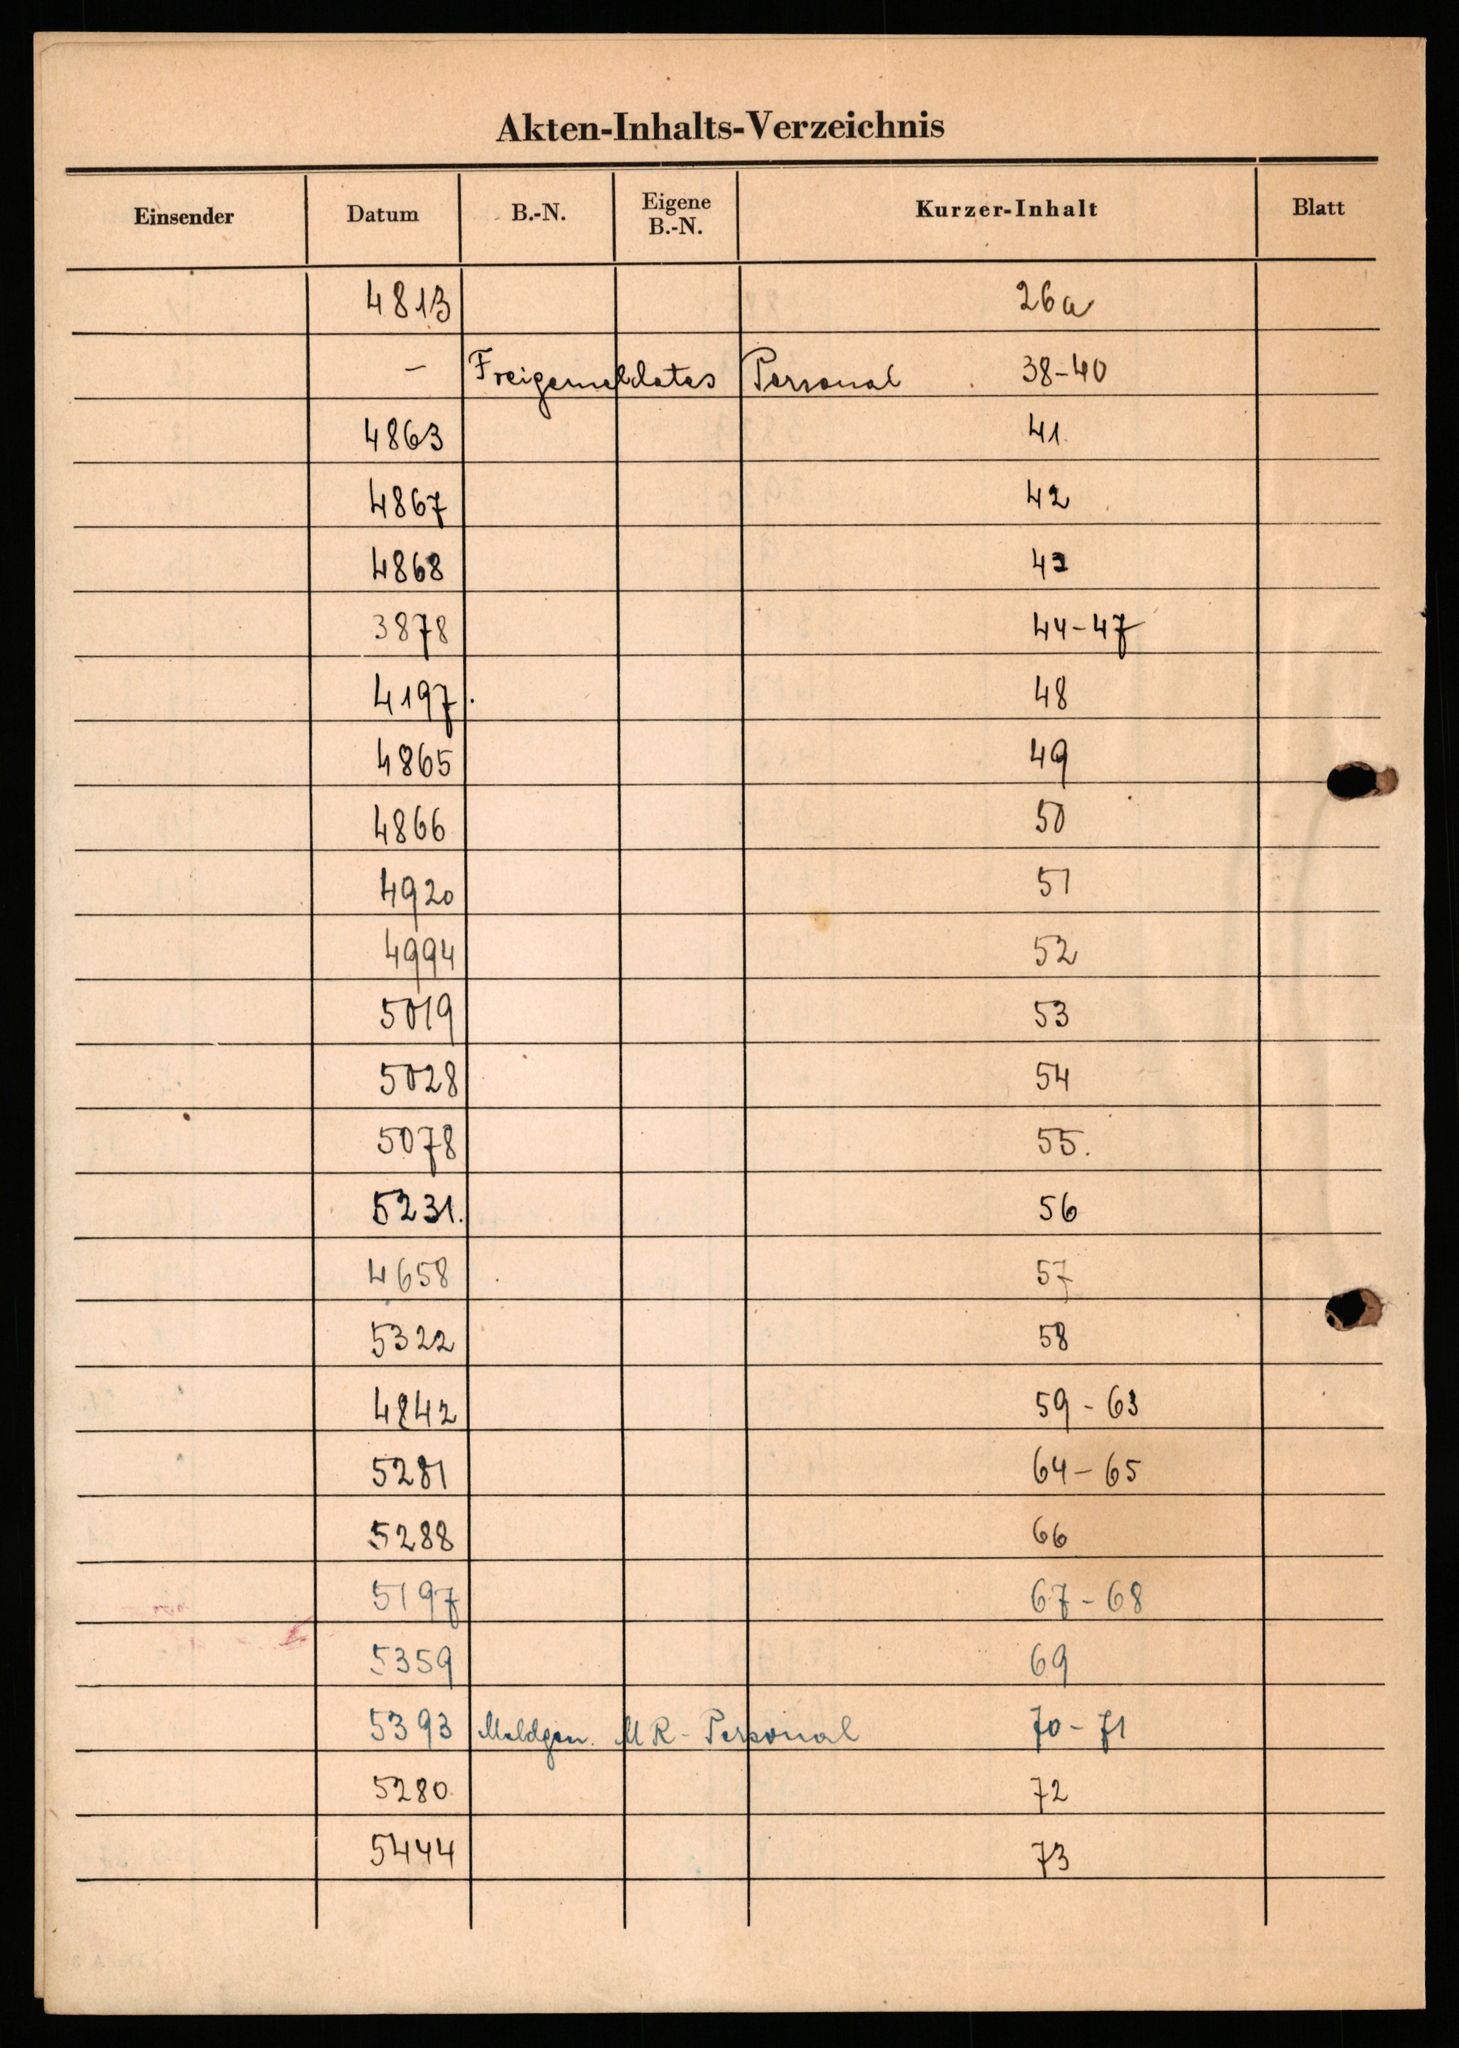 Akten-Inhalts-Verzeichnis
Einsender Datum B.-N. Eigene B.-N. Kurzer-Inhalt Blatt
4813 26a
– Freigemeldetes Personal 38-40
4863 41.
4867 42
4868 43
3878 44-47
4197. 48
4865 49
4866 50
4920 51
4994 52
5019 53
5028 54
5078 55.
5231. 56
4658 57
5322 58
4842 59-63
5281 64-65
5288 66
5197 67-68
5359 69
5393 Meldgen. MR-Personal 70-71
5280 72
5444 73